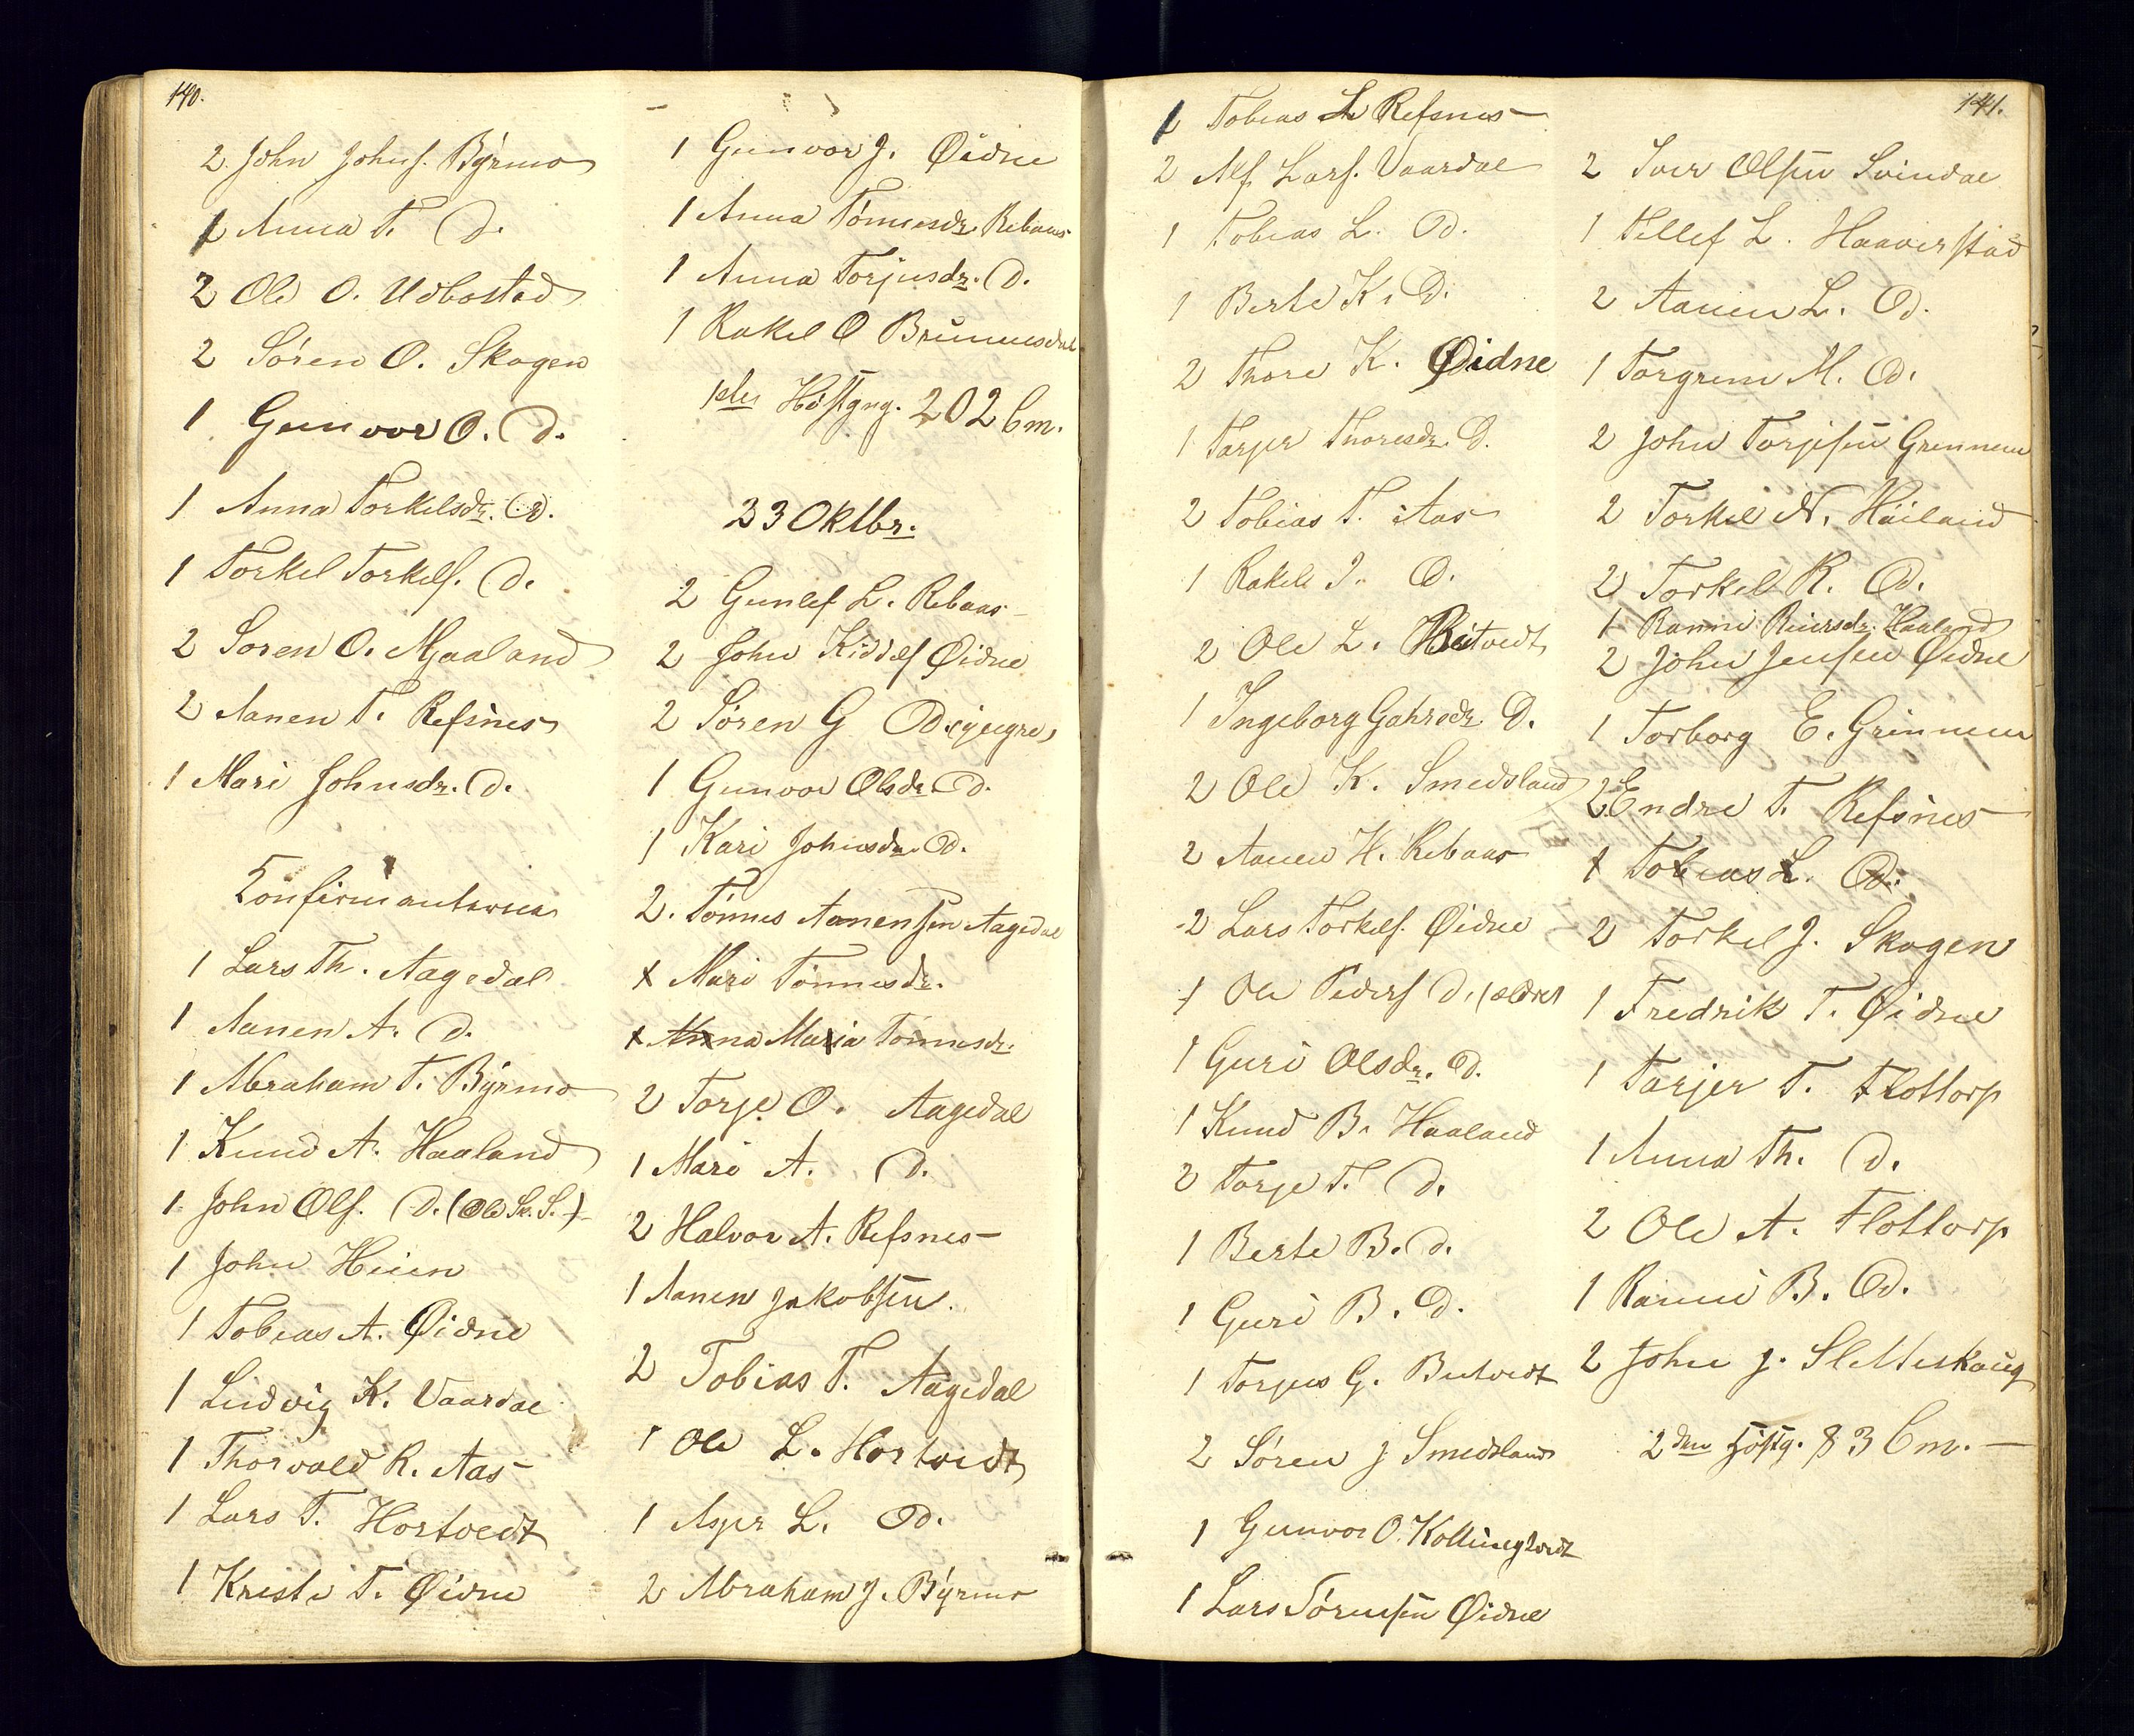 140.
2. John Johns. Byrmo
1 Anna T. D.
2 Ole O. Udbostad
2 Sören O. Skagen
1 Gunvor O. D.
1 Anna Torkelsdr. D.
1 Torkel Torkels. D.
2 Sören O. Mjaaland
2 Aanen T. Refsnes
1 Mari Johnsdr. D.
Konfirmanterne
1 Lars Th. Aagedal
1 Aanen A. D.
1 Abraham T. Byrmo
1 Knud A. Haaland
1 John Ols. D. (Ole S.)
1 John Heien
1 Tobias A. Øidne
1 Ludvig K. Vaardal
1 Thorvald R. Aas
1 Lars T. Hortvedt
1 Kriste T. Øidne
1 Gunvor J. Øidne
1 Anna Tönnesdr. Rebaas
1 Anna Torjusdr. D.
1 Rakel O Brunnesdal
1ste Höstgng. 202 Cm.
23 Oktbr.
2 Gunlef L. Rebaas
2 John Kiddelf Øidne
2 Sören G D. (yngre)
1 Gunvor Olsdr. D.
1 Kari Johnsdr. D.
2. Tönnes Aanensen Aagedal
1 Mari Tönnesdr.
1 Anna Maria Tönnesdr.
2 Torje O. Aagedal
1 Mari A. D.
2 Halvor A. Refsnes
1 Aanen Jakobsen.
2 Tobias T. Aagedal
1 Ole L. Hortvedt
1 Asper L. D.
2 Abraham J. Byrmo
141.
1 Tobias L Refsnes
2 Alf Lars. Vaardal
1 Tobias L. D.
1 Berte K. D.
2 Thore K. Øidne
1 Tarjer Thoresdr. D.
2 Tobias T. Aas
1 Rakel J. D.
2 Ole L.
1 Ingeborg D.
2 Ole K. Smedsland
2 Aanen H. Rebaas
2 Lars Torkels. Øidne
1 Ole Peders D. (ældre)
1 Guri Olsdr. D.
1 Knud B. Haaland
2 Torje T. D.
1 Berte B. D.
1 Guri B. D.
1 Torjus G.
2 Sören J Smedsland
1 Gunvor O. Kollungtvedt
1 Lars Sörensen Øidne
2 Iver Olsen Svindal
1 Tellef L. Haaverstad
2 Aanen L. D.
1 Torgrim M. D.
2 John Torjesen Grennem
2 Torkel N. Høiland
2 Torkel R. D.
1 Ranni Reiersdr. Haaland
2 John Jensen Øidne
1 Torborg E. Grinnem
2 Endre T. Refsnes
1 Tobias L. D.
2 Torkel J. Skagen
1 Fredrik T. Øidne
1 Tarjer T. Flottorp
1 Anna Th. D.
2 Ole A. Flottorp
1 Ranni B. D.
2 John J. Sletteskoug
2den Höstg. 83 Cm.